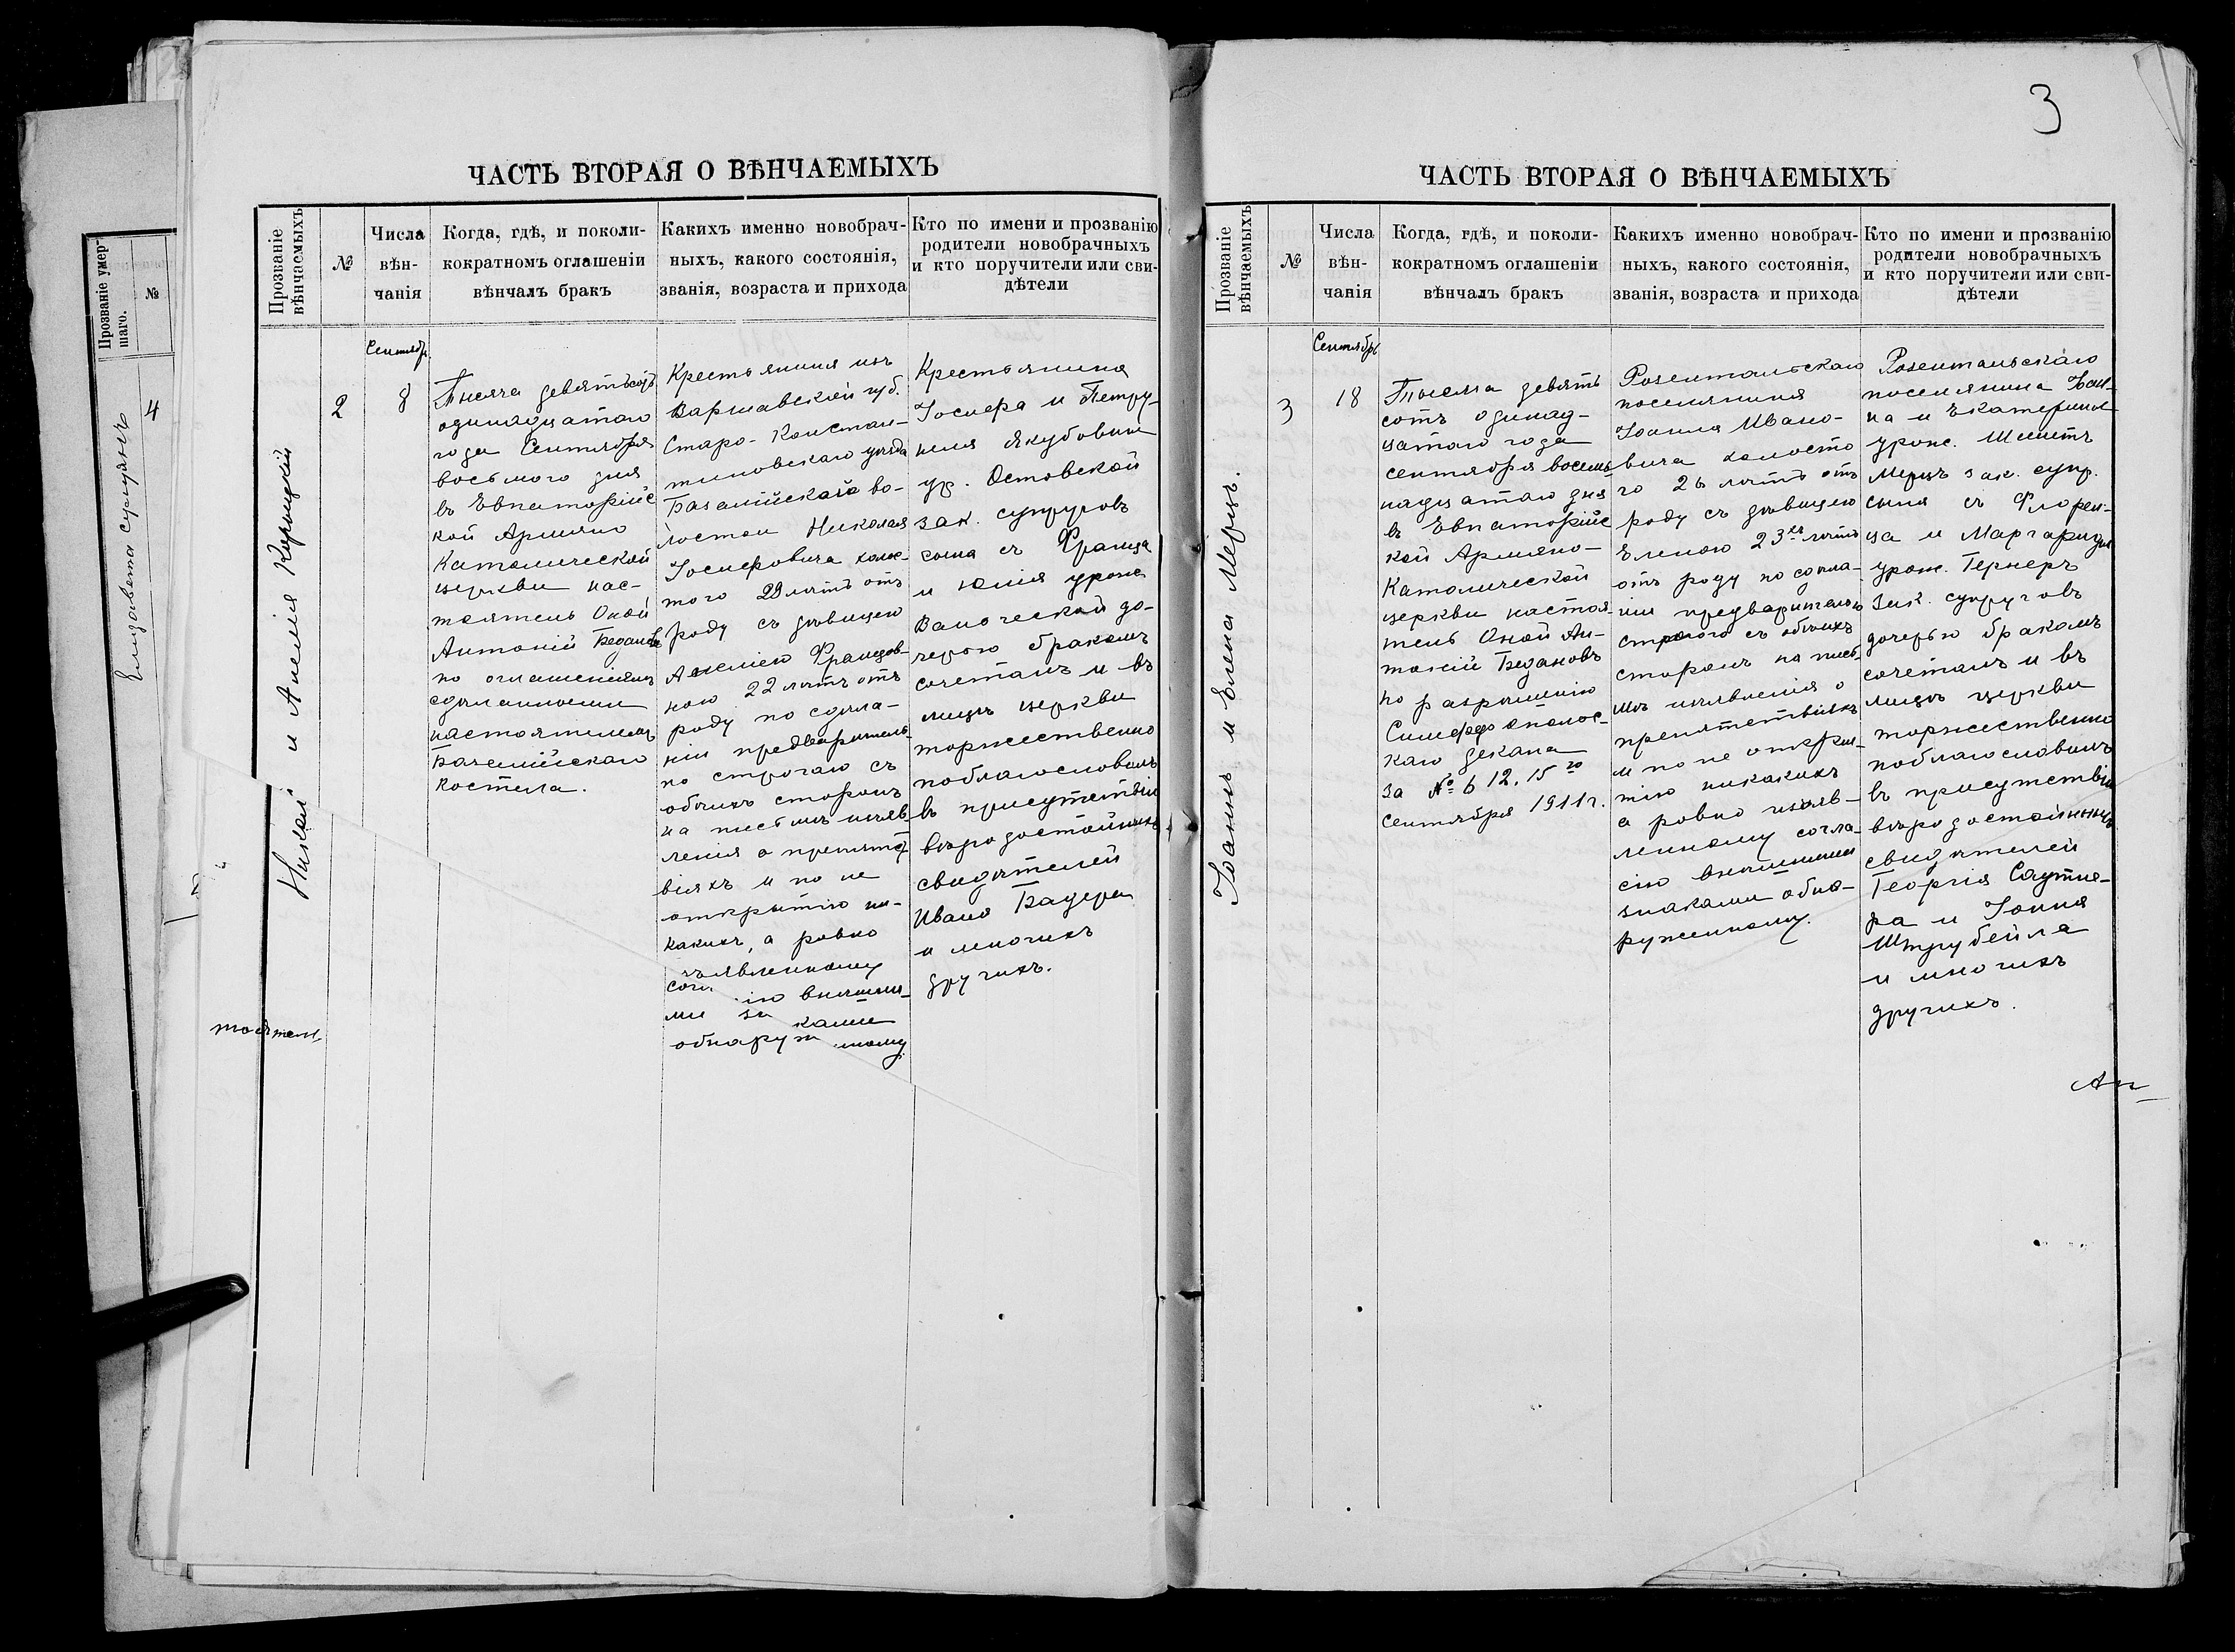 3
ЧАСТЬ ВТОРАЯ О ВѢНЧАЕМЫХЪ
Прозваніе умер-
шаго.
№
4
Елизавета
Прозваніе
вѣнчаемыхъ
№
Числа
вѣн-
чанія
Когда, гдѣ, и поколи-
кократномъ оглашеніи
вѣнчалъ бракъ
Какихъ именно новобрач-
ныхъ, какого состоянія,
званія, возраста и прихода
Кто по имени и прозванію
родители новобрачныхъ
и кто поручители или сви-
дѣтели
Николай и Анелія
2
Сентябр.
8
Тысяча девятьсотъ
одинадцатаго
года Сентября
восьмого дня
въ Евпаторійс
кой Армяно
Католической
церкви нас-
тоятель Оной
Антоній Бедановъ
по оглашеніямъ
сдѣланными
настоятелемъ
Базалійскаго
Костела.
Крестьянина изъ
Варшавской губ.
Старо-Констан-
тиновскаго уѣзда
Базалійской во-
лости Николая
Іосифовича холос-
того 29 лѣтъ отъ
роду съ дѣвицею
Анеліею Францов-
ною 22 лѣтъ отъ
роду по сдѣла-
ніи предваритель-
но строгаго съ
обѣихъ сторонъ
на письмѣ изъяв
ленія о препятст
віяхъ и по не
открытію ни-
какихъ, а ровно
зъявленному
сог ію внѣшни-
ми зн ками
обнаруж нному
Крестьянина
Іосифа и Петру-
нелія Якубовны
ур. Остовской
зак. супруговъ
сына съ Франца
и Юлія урожд
Ваноческой до-
черью бракомъ
сочеталъ и въ
лицѣ церкви
торжественно
поблагословилъ
въ присутствіи
вѣродостойныхъ
свидѣтелей
Ивана Бауера
и многихъ
другихъ.
тоятель
ЧАСТЬ ВТОРАЯ О ВѢНЧАЕМЫХЪ
Прозваніе
вѣнчаемыхъ
№
Числа
вѣн-
чанія
Когда, гдѣ, и поколи-
кократномъ оглашеніи
вѣнчалъ бракъ
Какихъ именно новобрач-
ныхъ, какого состоянія,
званія, возраста и прихода
Кто по имени и прозванію
родители новобрачныхъ
и кто поручители или сви-
дѣтели
Іоаннъ и Елена Мерцъ.
3
Сентябрь
18
Тысяча девять
сотъ одинад-
цатаго года
сентября восем
надцатаго дня
въ Евпаторійс
кой Армяно-
Католической
церкви настоя-
тель Оной Ан-
тоній Бедановъ
по разрѣшенію
Симферопольс-
каго декана
за № 612. 15 го
Сентября 1911 г.
Розентальскаго
поселянина
Іоанна Ивано-
вича холосто
го 26 лѣтъ отъ
роду съ дѣвицею
Еленою 23хъ лѣтъ
отъ роду по сдѣла-
ніи предварительно
строгаго съ обѣихъ
сторонъ на пись-
мѣ изъявленія о
препятствіяхъ
и по не откры-
тію никакихъ
а ровно изъяв-
ленному согла-
сію внѣшними
знаками обна-
руженному.
Розентальскаго
поселянина Іоан-
на и Екатерины
урож. Шмитъ
Мерцъ зак. супр.
сына съ Флорен-
ца и Маргариды
урож. Гернеръ
зак. супруговъ
дочерью бракомъ
сочеталъ и въ
лицѣ церкви
торжественно
поблагословилъ
въ присутствіи
вѣродостойныхъ
свидѣтелей
Георгія
ра и Іоанна
Штрубейла
и многихъ
другихъ.
Ан-